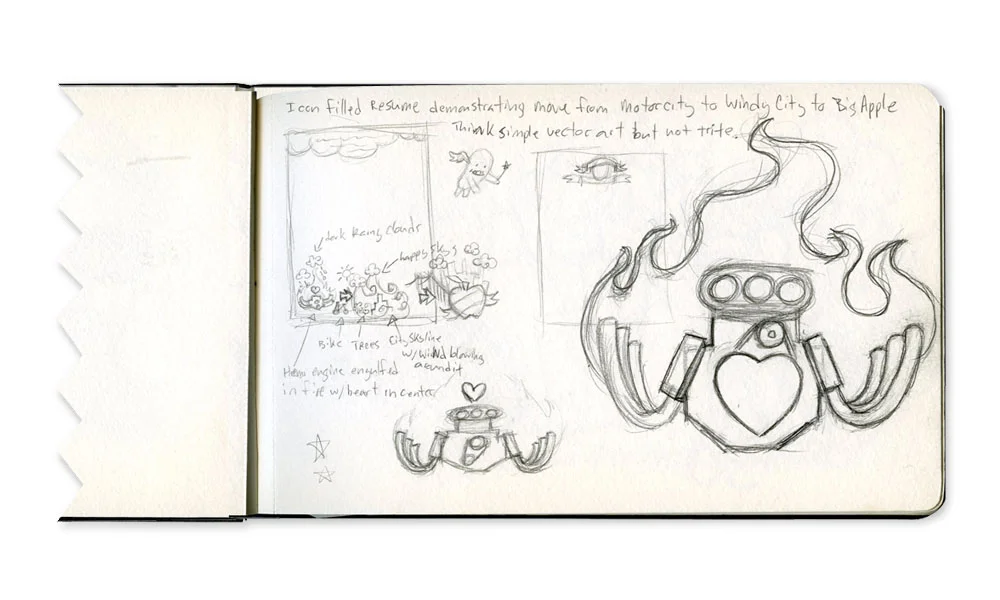 Icon filled Resume demonstrating move from Motorcity to Windy City to Big Apple
Think simple vector art but not trite.
dark Rainy clouds
happy skys
Bike Trees City Skyline
w/ wind blowing
around it
Hemi engine engulfed
in fire w/ heart in center